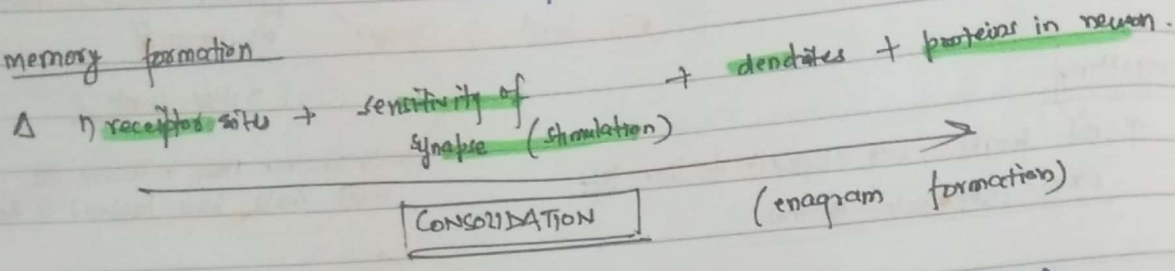 memory formation
Δ η receptor sites + sensitivity of synapse (stimulation) + dendrites + proteins in neuron.
CONSOLIDATION (enagram formation)